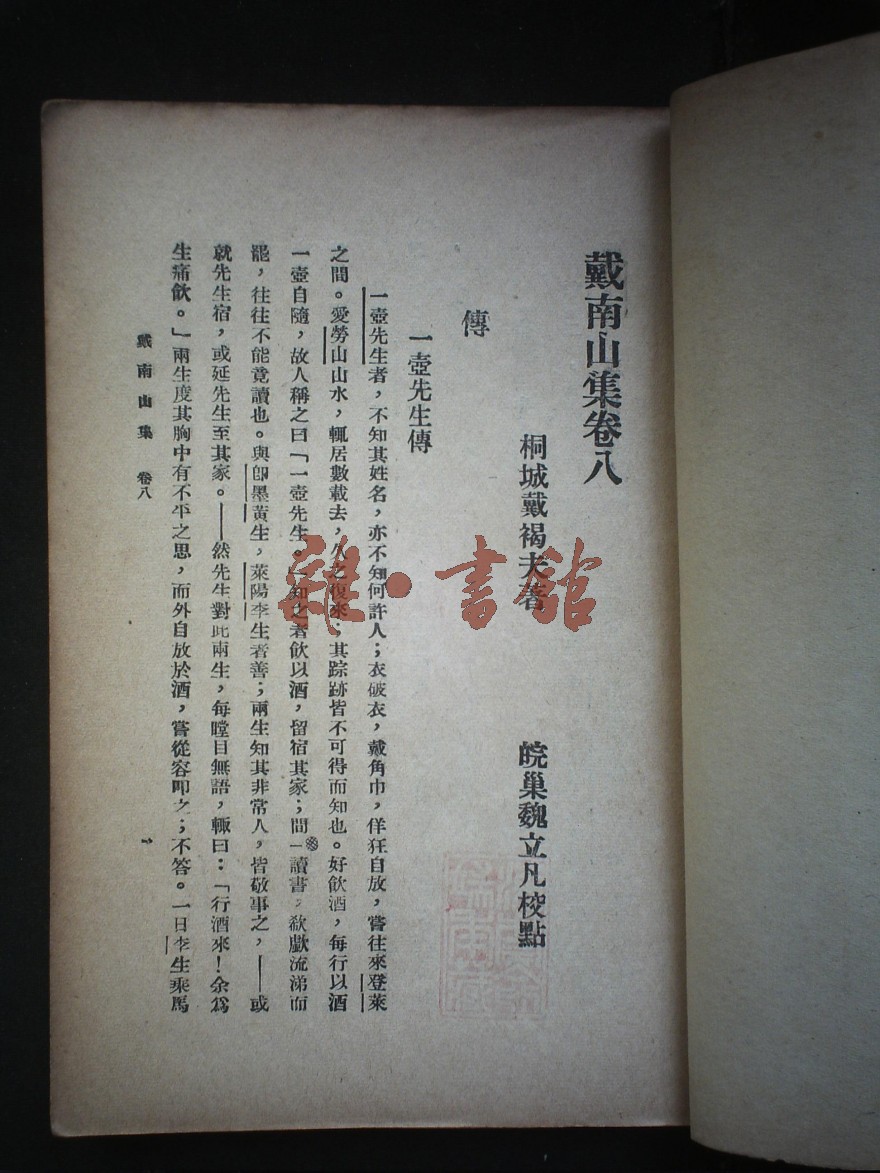 戴南山集卷八
桐城戴褐夫著
皖巢魏立凡校點
傳
一壺先生傳
一壺先生者，不知其姓名，亦不知何許人；衣破衣，戴角巾，佯狂自放，嘗往來登萊
之間。愛勞山山水，輒居數載去，久之復來；其踪跡皆不可得而知也。好飲酒，每行以酒
一壺自隨，故人稱之曰「一壺先生。」知之者飲以酒，留宿其家；間一讀書，欷歔流涕而
罷，往往不能竟讀也。與卽墨黃生，萊陽李生者善；兩生知其非常人，皆敬事之，——或
就先生宿，或延先生至其家。——然先生對此兩生，每瞠目無語，輒曰：「行酒來！余爲
生痛飲。」兩生度其胸中有不平之思，而外自放於酒，嘗從容叩之；不答。一日李生乘馬
戴南山集 卷八
一
雜·書館